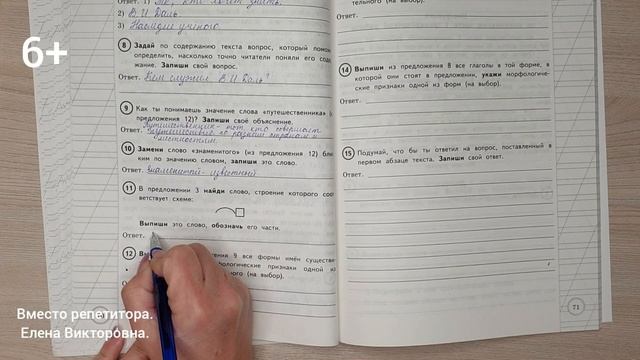 Ответ. 1) Те, кто хочет знать.
2) В.И. Даль
3) Наследие учёного
8 Задай по содержанию текста вопрос, который
определить, насколько точно читатели поняли его
жание. Запиши свой вопрос.
Ответ. Кем служил В.И. Даль?
9 Как ты понимаешь значение слова «путешественника»
предложения 12)? Запиши своё объяснение.
Путешественник - тот кто совершает
Ответ. путешествие по разным странам и
местностям.
10 Замени слово «знаменитого» (из предложения 12)
ким по значению словом, запиши это слово.
Ответ. Знаменитый - известный
11 В предложении 3 найди слово, строение которого
ветствует схеме:
Выпиши это слово, обозначь его части.
Ответ.
12
9 все формы имён
признаки одной из
(на выбор).
тельного (на выбор).
Ответ.
14 Выпиши из предложения 8 все глаголы в той форме, в
которой они стоят в предложении, укажи морфологиче-
ские признаки одной из форм (на выбор).
Ответ.
15 Подумай, что бы ты ответил на вопрос, поставленный в
первом абзаце текста. Запиши свой ответ.
Ответ.
71
6+
Вместо репетитора.
Елена Викторовна.